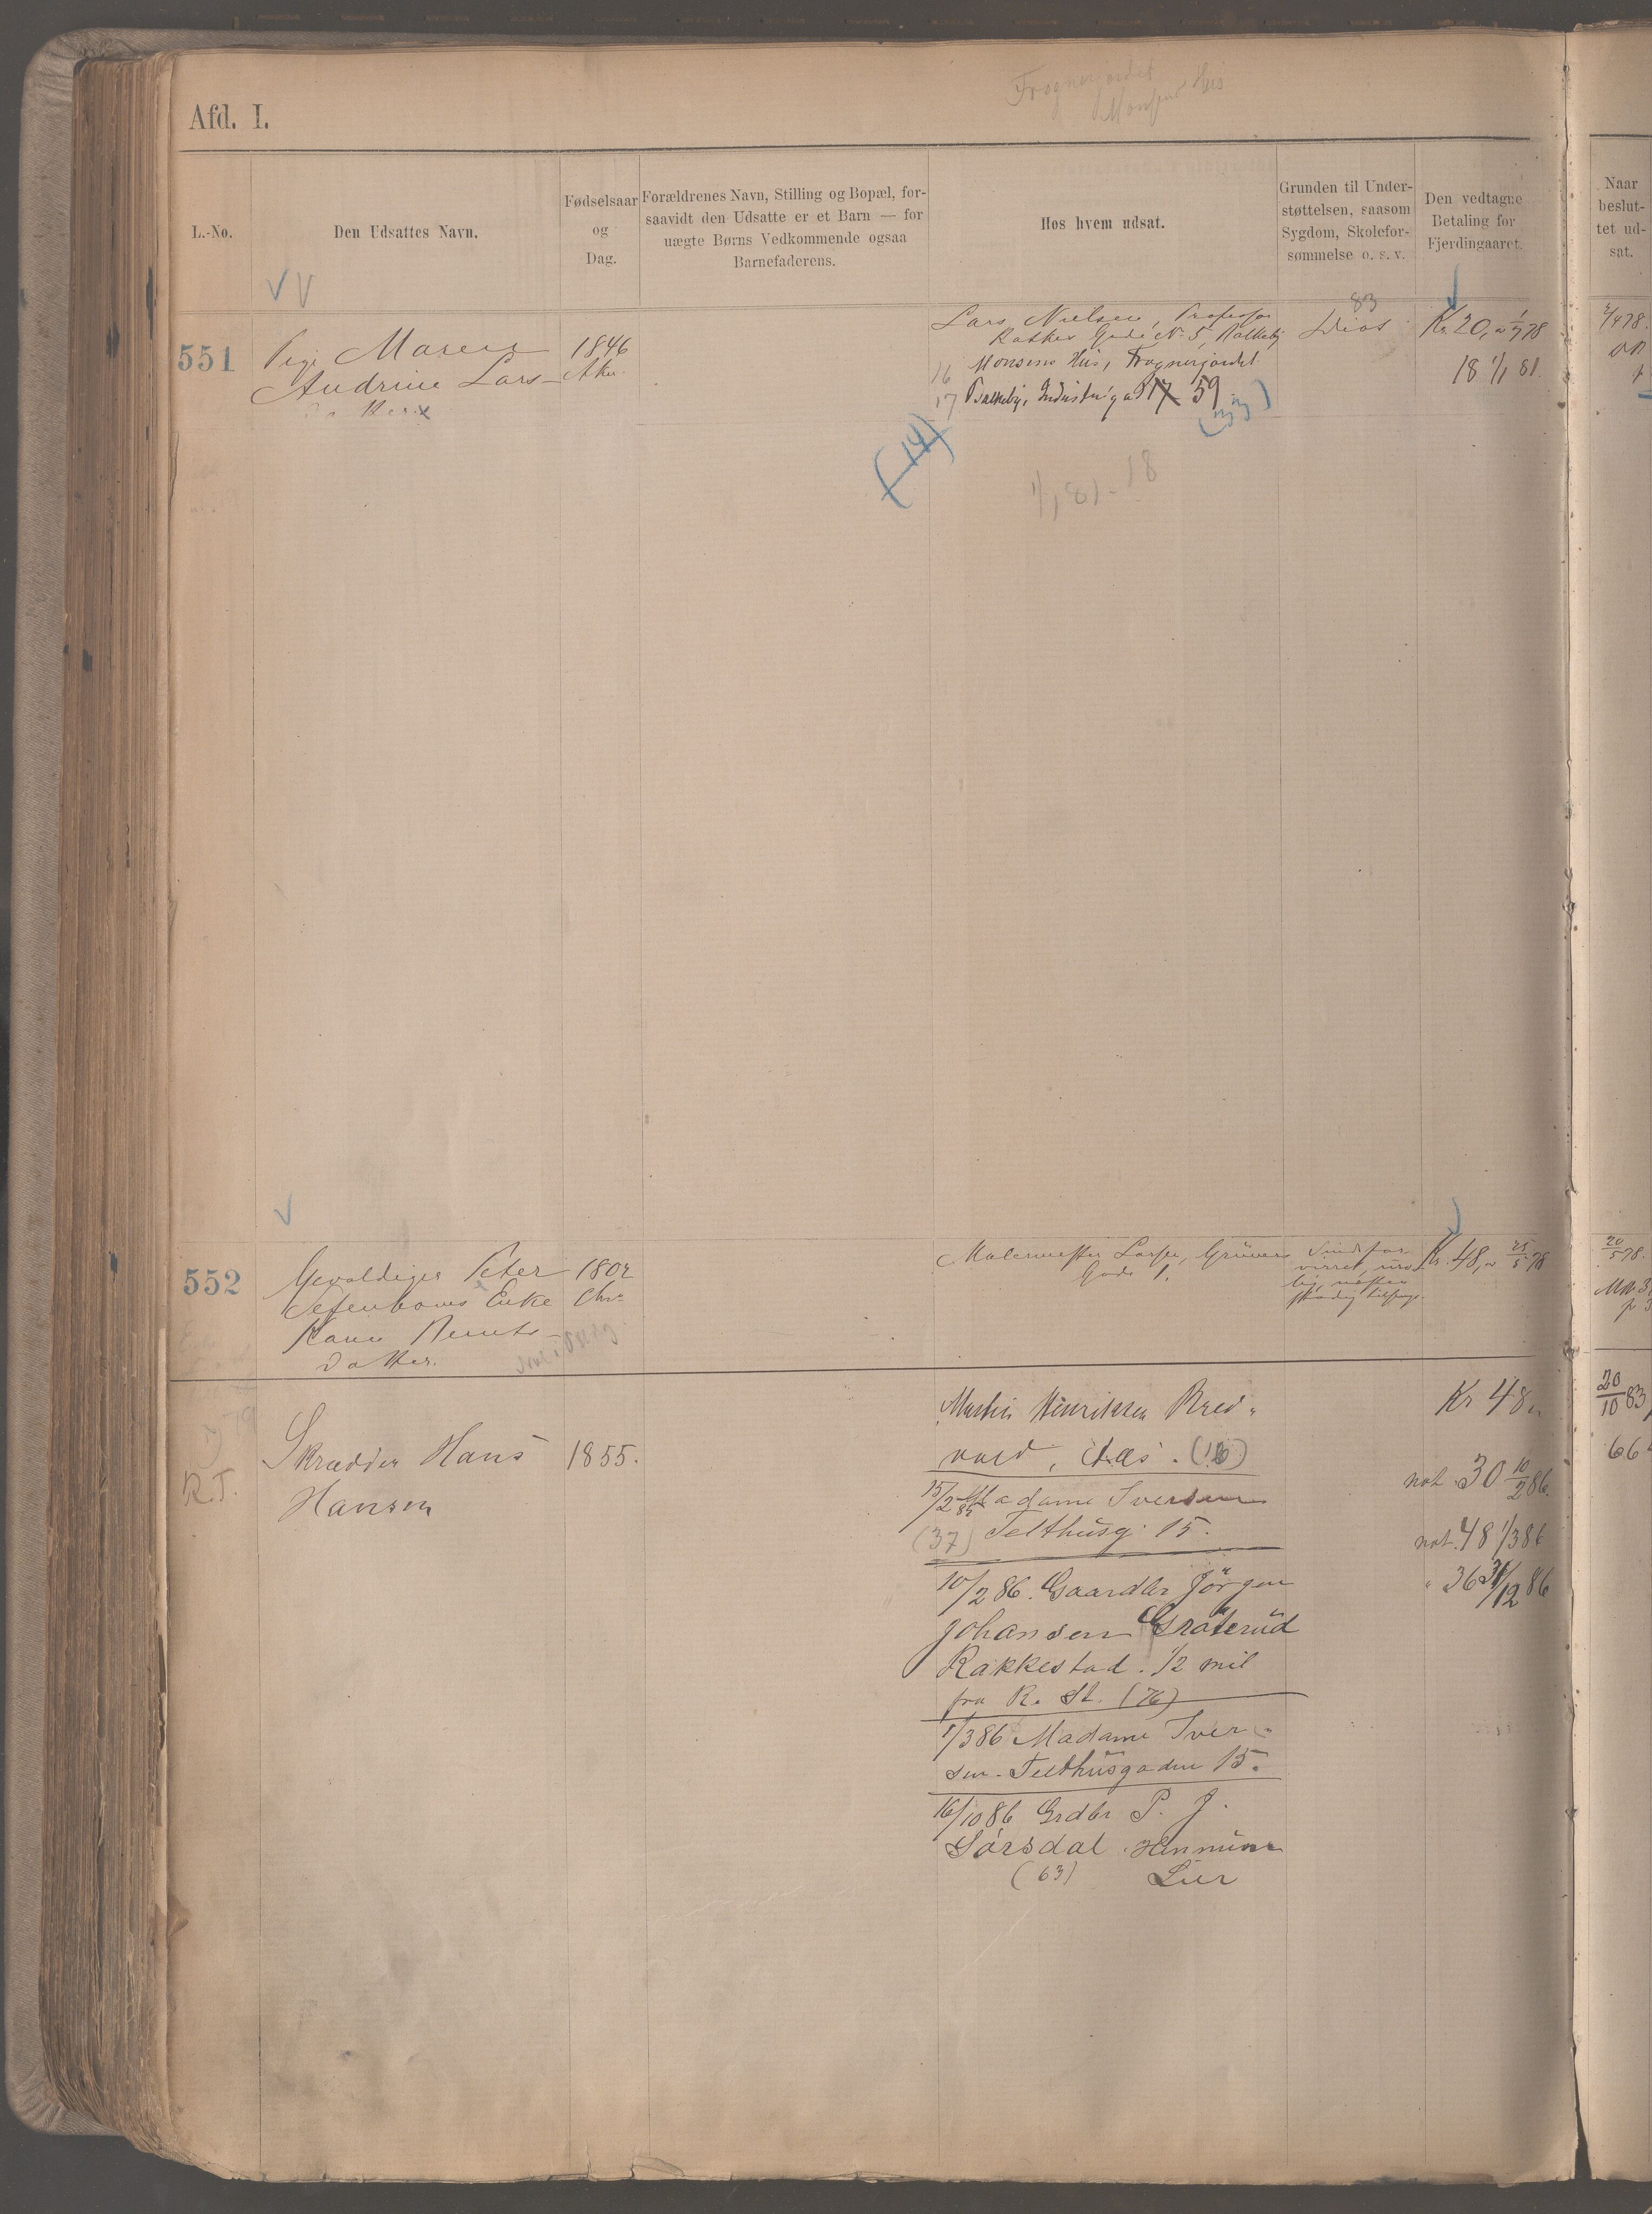 Frognerjordet
Monsens Hus
Afd. I.
L.-No.
Den Udsattes Navn.
Fødselsaar
og
Dag.
Forældrenes Navn, Stilling og Bopæl, for-
saavidt den Udsatte er et Barn — for
uægte Børns Vedkommende ogsaa
Barnefaderens.
Hos hvem udsat.
Grunden til Under-
støttelsen, saasom
Sygdom, Skolefor-
sømmelse o. s. v.
Den vedtagne
Betaling for
Fjerdingaaret.
Naar
beslut-
tet ud-
sat.
551
Pige Maren
Andrine Lars-
datter
1846
Aker
Lars Nielsen, Professor
Rathes Gade No 5, Balkeby
16 Monsens Hus, Frognerjordet
17 Balkeby, Industrigad 17 59
(14)
1/1 81. 18
83
Idiot
Kr. 20,
1/7 78
18 1/1 81.
2/4 78
552
Gevaldiger Peter
Enke
Karen Bernts-
datter.
1802
Chra
Malermester Larsen, Grüners
Gade 1.
Sindsfor-
virret, uro-
lig, næsten
stadig tilsengs
Kr. 48, 25/5 78
20/5 78.
R.T.
Skrædder Hans
Hansen
1855.
Martin Henriksen Bred-
vold, Aas. (16)
15/2 84 Madame Iversen
(37) Telthusg. 15.
10/2 86. Gaardbr Jörgen
Johansen Gråterud
Rakkestad. 1/2 mil
fra R. St. (76)
1/3 86 Madame Iver-
sen. Telthusgaden 15.
16/10 86 Grdbr P. J.
Sörsdal
(63) Lier
Kr 48
not. 30 10/2 86.
not. 48 1/3 86
" 36 31/12 86
20/10 83